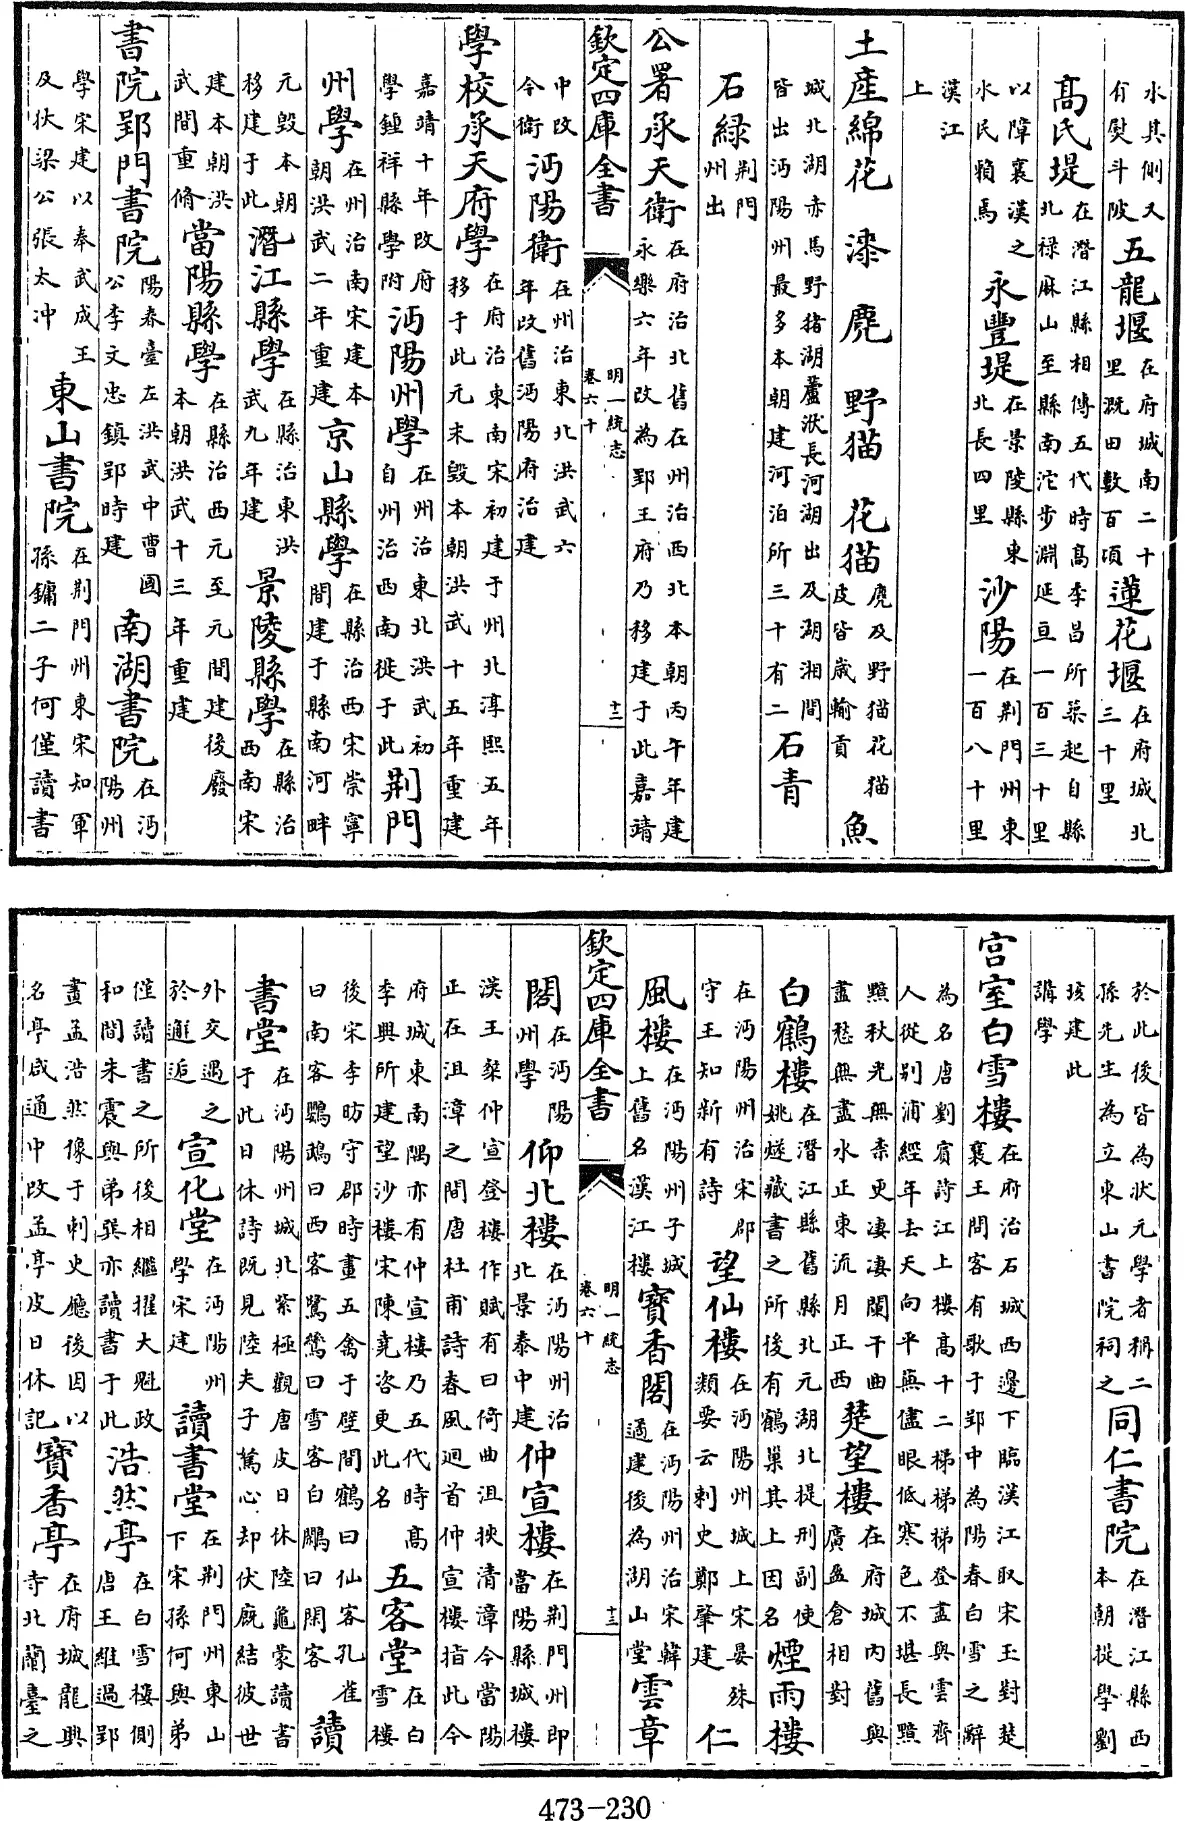 水其側又
有熨斗陂
五龍堰
在府城南二十
里溉田數百頃
蓮花堰
在府城北
三十里
高氏堤
在潛江縣相傳五代時高季昌所築起自縣
北祿麻山至縣南沱步淵延亘一百三十里
以障襄漢之
水民賴焉
永豐堤
在景陵縣東
北長四里
沙陽
在荆門州東
一百八十里
漢江
上
土產綿花 漆 麂 野猫 花猫
麂及野猫花猫
皮皆歲輸貢
魚
城北湖赤馬野猪湖蘆洑長河湖出及湖湘間
皆出沔陽州最多本朝建河泊所三十有二
石青
石緑
荆門
州出
公署承天衛
在府治北舊在州治西北本朝丙午年建
永樂六年改為郢王府乃移建于此嘉靖
欽定四庫全書
明一統志
卷六十
十二
中改
今衛
沔陽衛
在州治東北洪武六
年改舊沔陽府治建
學校承天府學
在府治東南宋初建于州北淳熙五年
移于此元末毁本朝洪武十五年重建
嘉靖十年改府
學鍾祥縣學附
沔陽州學
在州治東北洪武初
自州治西南徙于此
荆門
州學
在州治南宋建本
朝洪武二年重建
京山縣學
在縣治西宋崇寧
間建于縣南河畔
元毁本朝
移建于此
潛江縣學
在縣治東洪
武九年建
景陵縣學
在縣治
西南宋
建本朝洪
武間重脩
當陽縣學
在縣治西元至元間建後廢
本朝洪武十三年重建
書院郢門書院
陽春臺左洪武中曹國
公李文忠鎮郢時建
南湖書院
在沔
陽州
學宋建以奉武成王
及狄梁公張太冲
東山書院
在荆門州東宋知軍
孫鏞二子何僅讀書
於此後皆為狀元學者稱二
孫先生為立東山書院祠之
同仁書院
在潛江縣西
本朝提學劉
琰建此
講學
宫室白雪樓
在府治石城西邊下臨漢江取宋玉對楚
襄王問客有歌于郢中為陽春白雪之辭
為名唐劉賓詩江上樓高十二梯梯梯登盡與雲齊
人從别浦經年去天向平蕪儘眼低寒色不堪長黯
黯秋光無柰更凄凄闌干曲
盡愁無盡水正東流月正西
楚望樓
在府城内舊與
廣盈倉相對
白鶴樓
在潛江縣舊縣北元湖北提刑副使
姚燧藏書之所後有鶴巢其上因名
煙雨樓
在沔陽州治宋郡
守王知新有詩
望仙樓
在沔陽州城上宋晏殊
類要云刺史鄭肇建
仁
風樓
在沔陽州子城
上舊名漢江樓
寶香閣
在沔陽州治宋韓
適建後為湖山堂
雲章
欽定四庫全書
明一統志
卷六十
十三
閣
在沔陽
州學
仰北樓
在沔陽州治
北景泰中建
仲宣樓
在荆門州即
當陽縣城樓
漢王粲仲宣登樓作賦有曰倚曲沮挾清漳今當陽
正在沮漳之間唐杜甫詩春風廻首仲宣樓指此今
府城東南隅亦有仲宣樓乃五代時高
季興所建望沙樓宋陳堯咨更此名
五客堂
在白
雪樓
後宋李昉守郡時畫五禽于壁間鶴曰仙客孔雀
曰南客鸚鵡曰西客鷺鷥曰雪客白鷴曰閑客
讀
書堂
在沔陽州城北紫極觀唐皮日休陸龜蒙讀書
于此日休詩既見陸夫子駑心却伏廐結彼世
外交遇之
於邂逅
宣化堂
在沔陽州
學宋建
讀書堂
在荆門州東山
下宋孫何與弟
僅讀書之所後相繼擢大魁政
和間朱震與弟巽亦讀書于此
浩然亭
在白雪樓側
唐王維過郢
畫孟浩然像于刺史廳後因以
名亭咸通中改孟亭皮日休記
寶香亭
在府城龍興
寺北蘭臺之
473-230